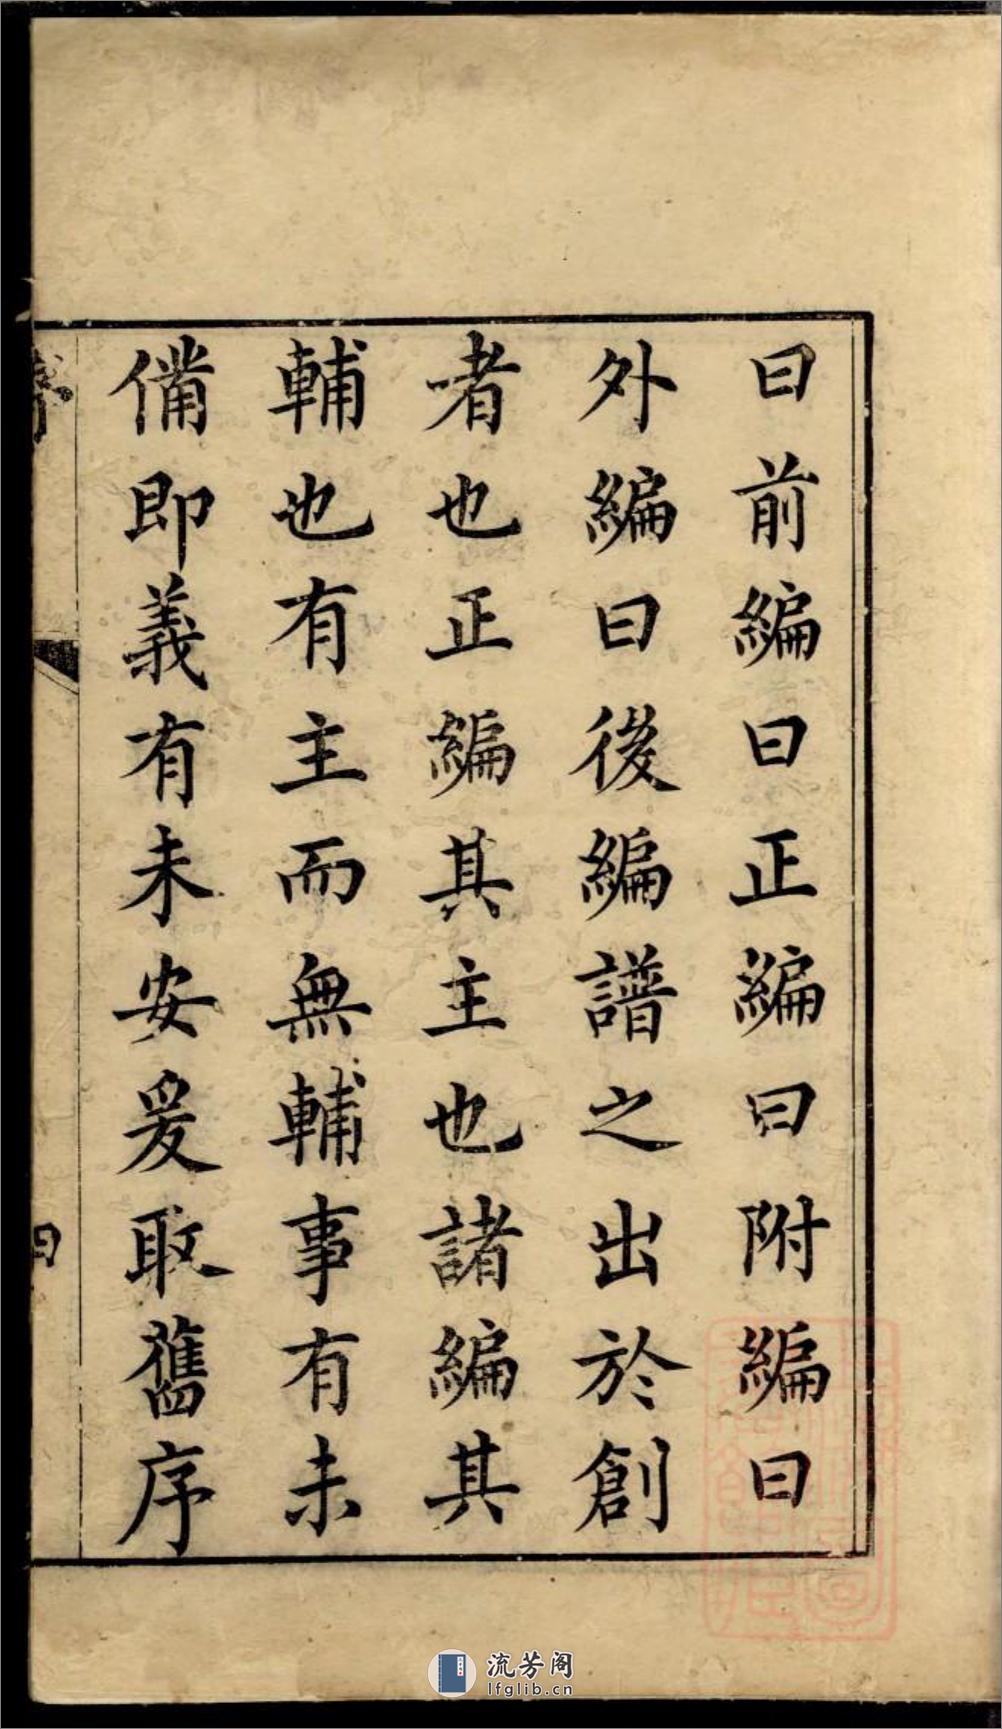 曰前編曰正編曰附編曰
外編曰後編譜之出於創
者也正編其主也諸編其
輔也有主而無輔事有未
俻即義有未安爰取舊序
序
四
流芳阁
lfglib.cn